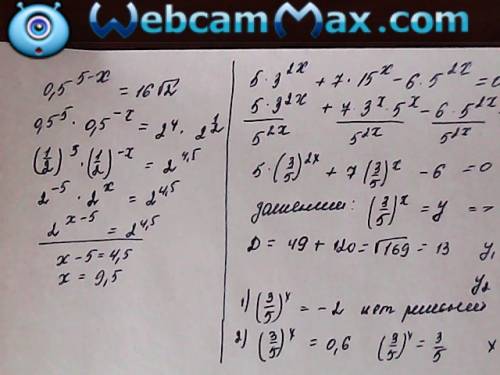 WebcamMax.com
0,5^{5-x} = 16√2
0,5^5 · 0,5^{-x} = 2^4 · 2^{1/2}
(1/2)^5 · (1/2)^{-x} = 2^{4,5}
2^{-5} · 2^x = 2^{4,5}
2^{x-5} = 2^{4,5}
x - 5 = 4,5
x = 9,5
5 · 3^{2x} + 7 · 15^x - 6 · 5^{2x} = 0
5 · 3^{2x}/5^{2x} + 7 · 3^x · 5^x/5^{2x} - 6 · 5^{2x}/5^{2x}
5 · (3/5)^{2x} + 7 (3/5)^x - 6 = 0
заменим: (3/5)^x = y =>
D = 49 + 120 = √169 = 13 y₁
y₂
1) (3/5)^x = -2 нет решений
2) (3/5)^x = 0,6 (3/5)^x = 3/5 x